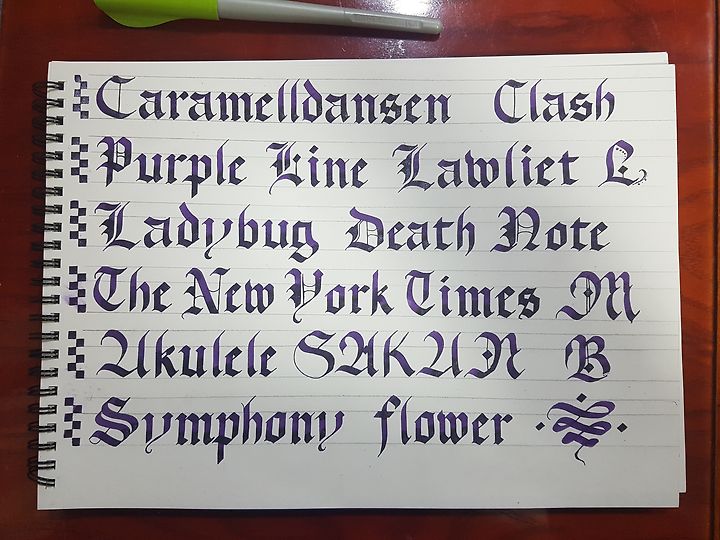 Caramelldansen Clash
Purple Line Lawliet L
Ladybug Death Note
The New York Times M
Ukulele SAKUN B
Symphony flower